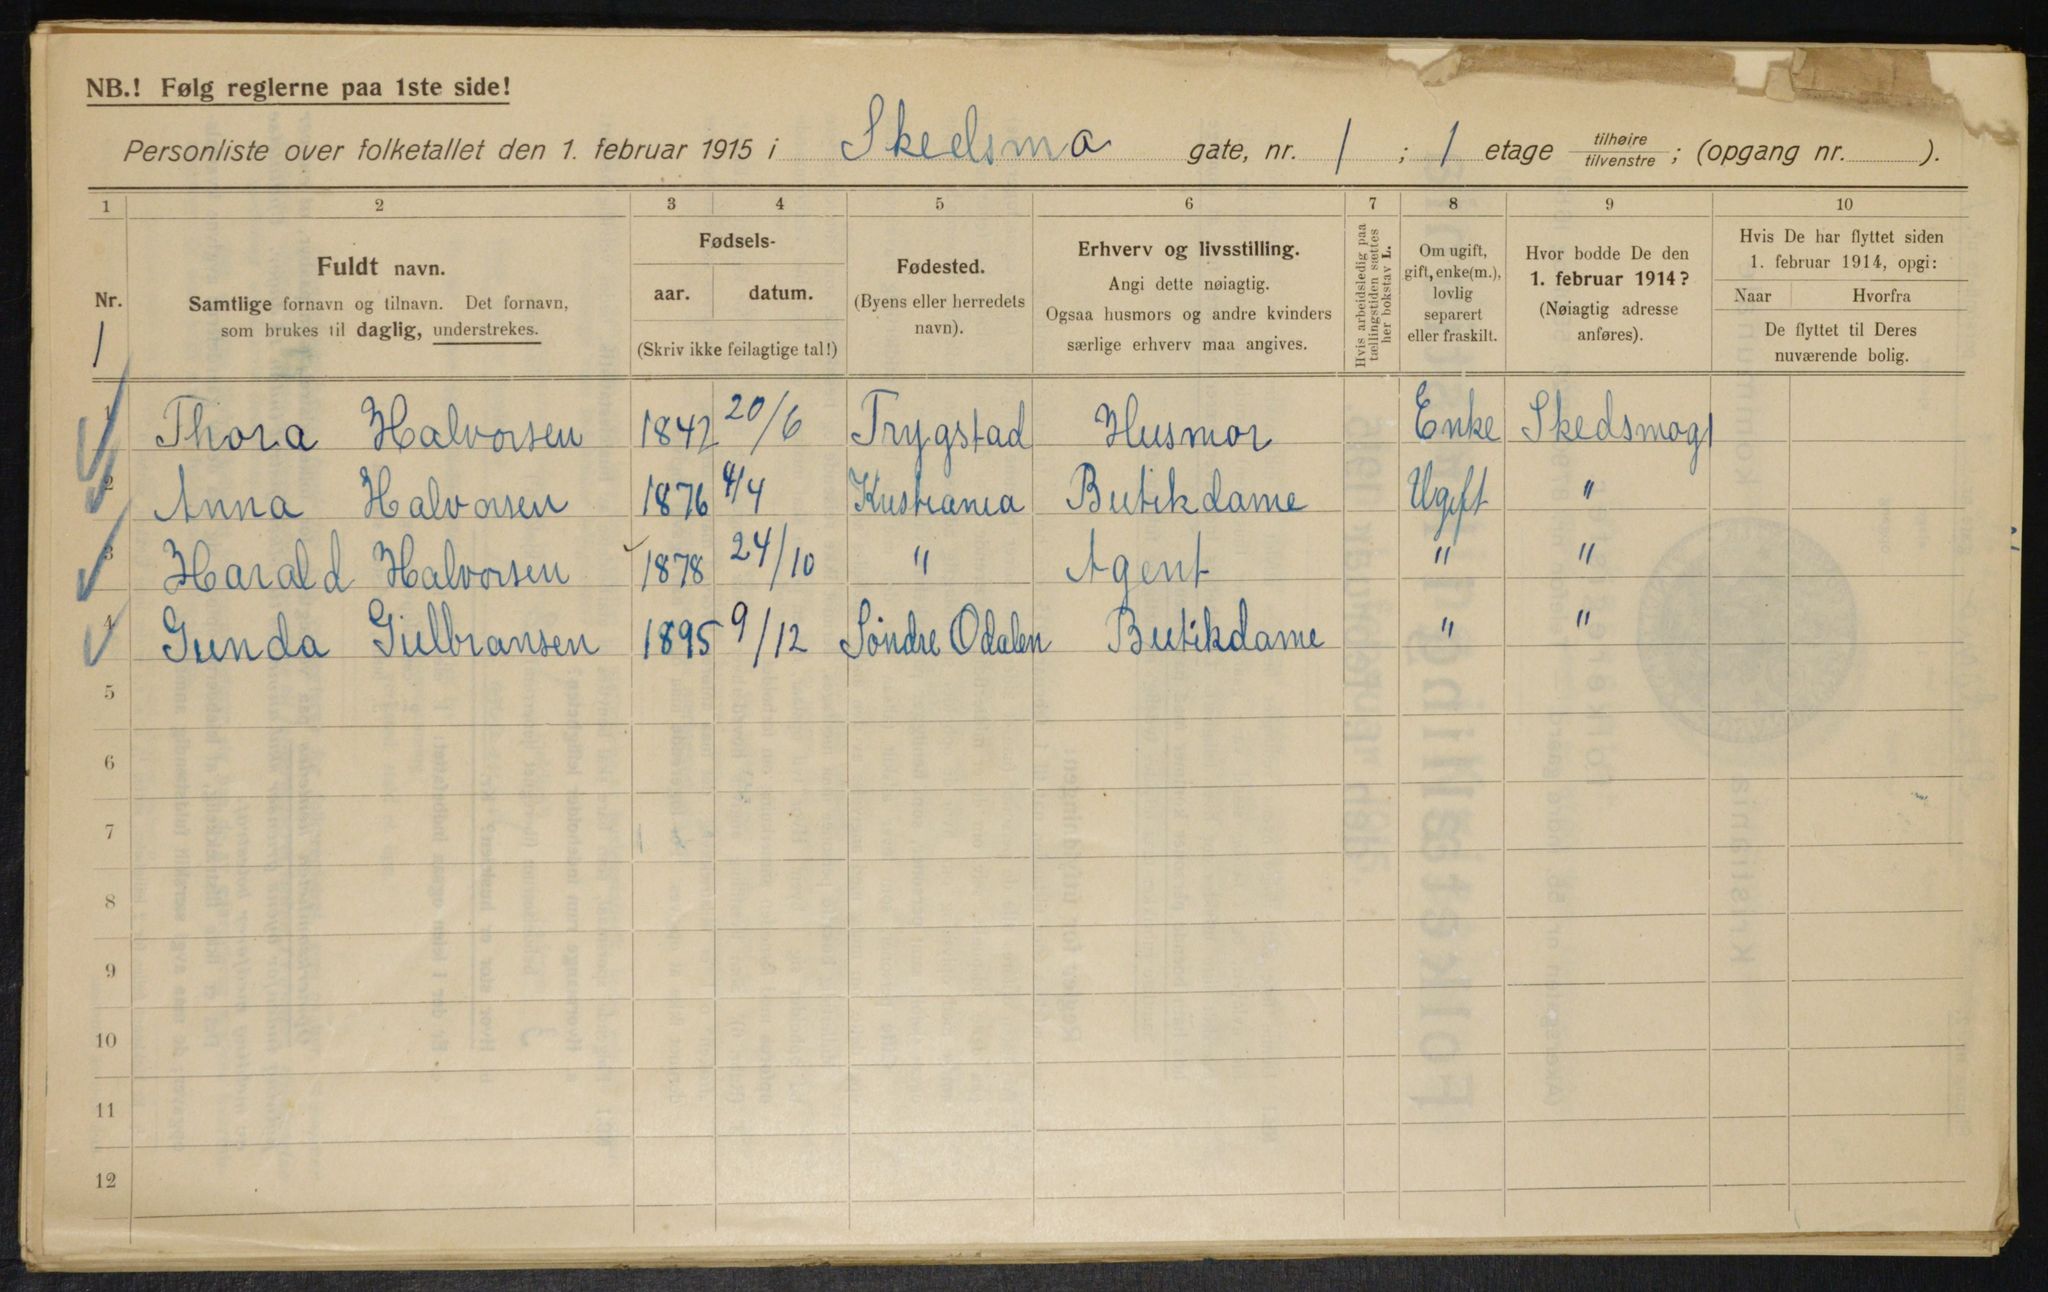 NB.! Følg reglerne paa 1ste side!
Personliste over folketallet den 1. februar 1915 i Skedsmo gate, nr. 1 ; 1 etage tilhøire tilvenstre ; (opgang nr. ).
1 2 3 4 5 6 7 8 9 10
Nr.
1
Fuldt navn.
Samtlige fornavn og tilnavn. Det fornavn,
som brukes til daglig, understrekes.
Fødsels-
aar. datum.
(Skriv ikke feilagtige tal!)
Fødested.
(Byens eller herredets
navn).
Erhverv og livsstilling.
Angi dette nøiagtig.
Ogsaa husmors og andre kvinders
særlige erhverv maa angives.
Hvis arbeidsledig paa
tællingstiden sættes
her bokstav L.
Om ugift,
gift, enke(m.),
lovlig
separert
eller fraskilt.
Hvor bodde De den
1. februar 1914?
(Nøiagtig adresse
anføres).
Hvis De har flyttet siden
1. februar 1914, opgi:
Naar Hvorfra
De flyttet til Deres
nuværende bolig.
1 Thora Halvorsen 1842 20/6 Trygstad Husmor Enke Skedsmog 1
2 Anna Halvorsen 1876 4/4 Kristiania Butikdame Ugift "
3 Harald Halvorsen 1878 24/10 " Agent " "
4 Gunda Gulbransen 1895 9/12 Søndre Odalen Butikdame " "
5
6
7
8
9
10
11
12